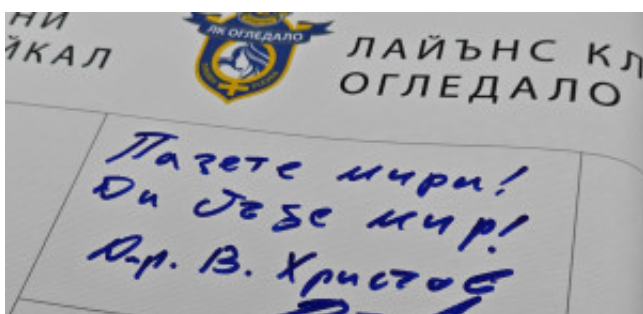 НИ
ЙКАЛ
ЛК ОГЛЕДАЛО
ЛАЙЪНС КЛ
ОГЛЕДАЛО
Пазете мира!
Да бъде мир!
Д-р. В. Христов